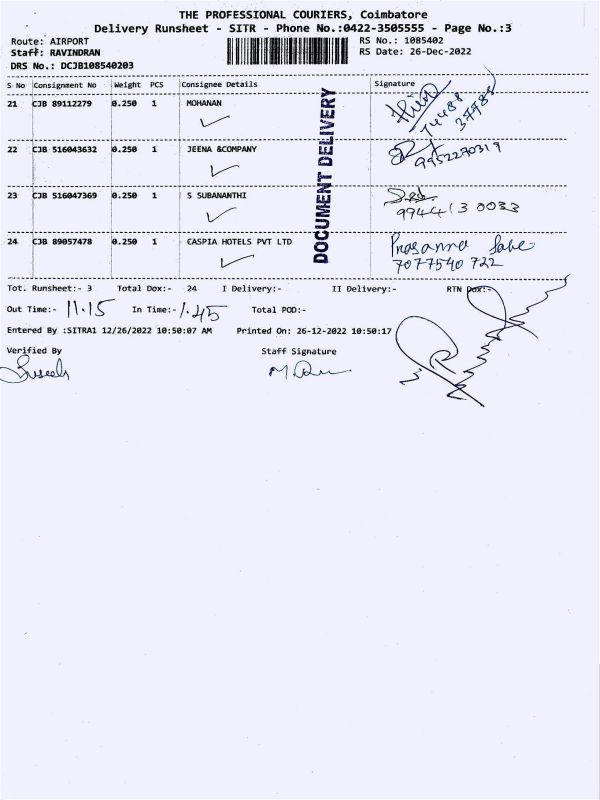 THE PROFESSIONAL COURIERS, Coimbatore
Delivery Runsheet - SITR - Phone No.:0422-3505555 - Page No.:3
Route: AIRPORT
RS No.: 1085402
Staff: RAVINDRAN
RS Date: 26-Dec-2022
DRS No.: DCJB108540203
S No Consignment No Weight PCS Consignee Details Signature
21 CJB 89112279 0.250 1 MOHANAN
74488
37988
22 CJB 516043632 0.250 1 JEENA &COMPANY
9952270319
23 CJB 516047369 0.250 1 S SUBANANTHI
9944130033
24 CJB 89057478 0.250 1 CASPIA HOTELS PVT LTD
Prasanna
7077540722
DOCUMENT DELIVERY
Tot. Runsheet:- 3 Total Dox:- 24 I Delivery:- II Delivery:- RTN Dox:-
Out Time:- 11.15 In Time:- 1.45 Total POD:-
Entered By :SITRA1 12/26/2022 10:50:07 AM Printed On: 26-12-2022 10:50:17
Verified By Staff Signature